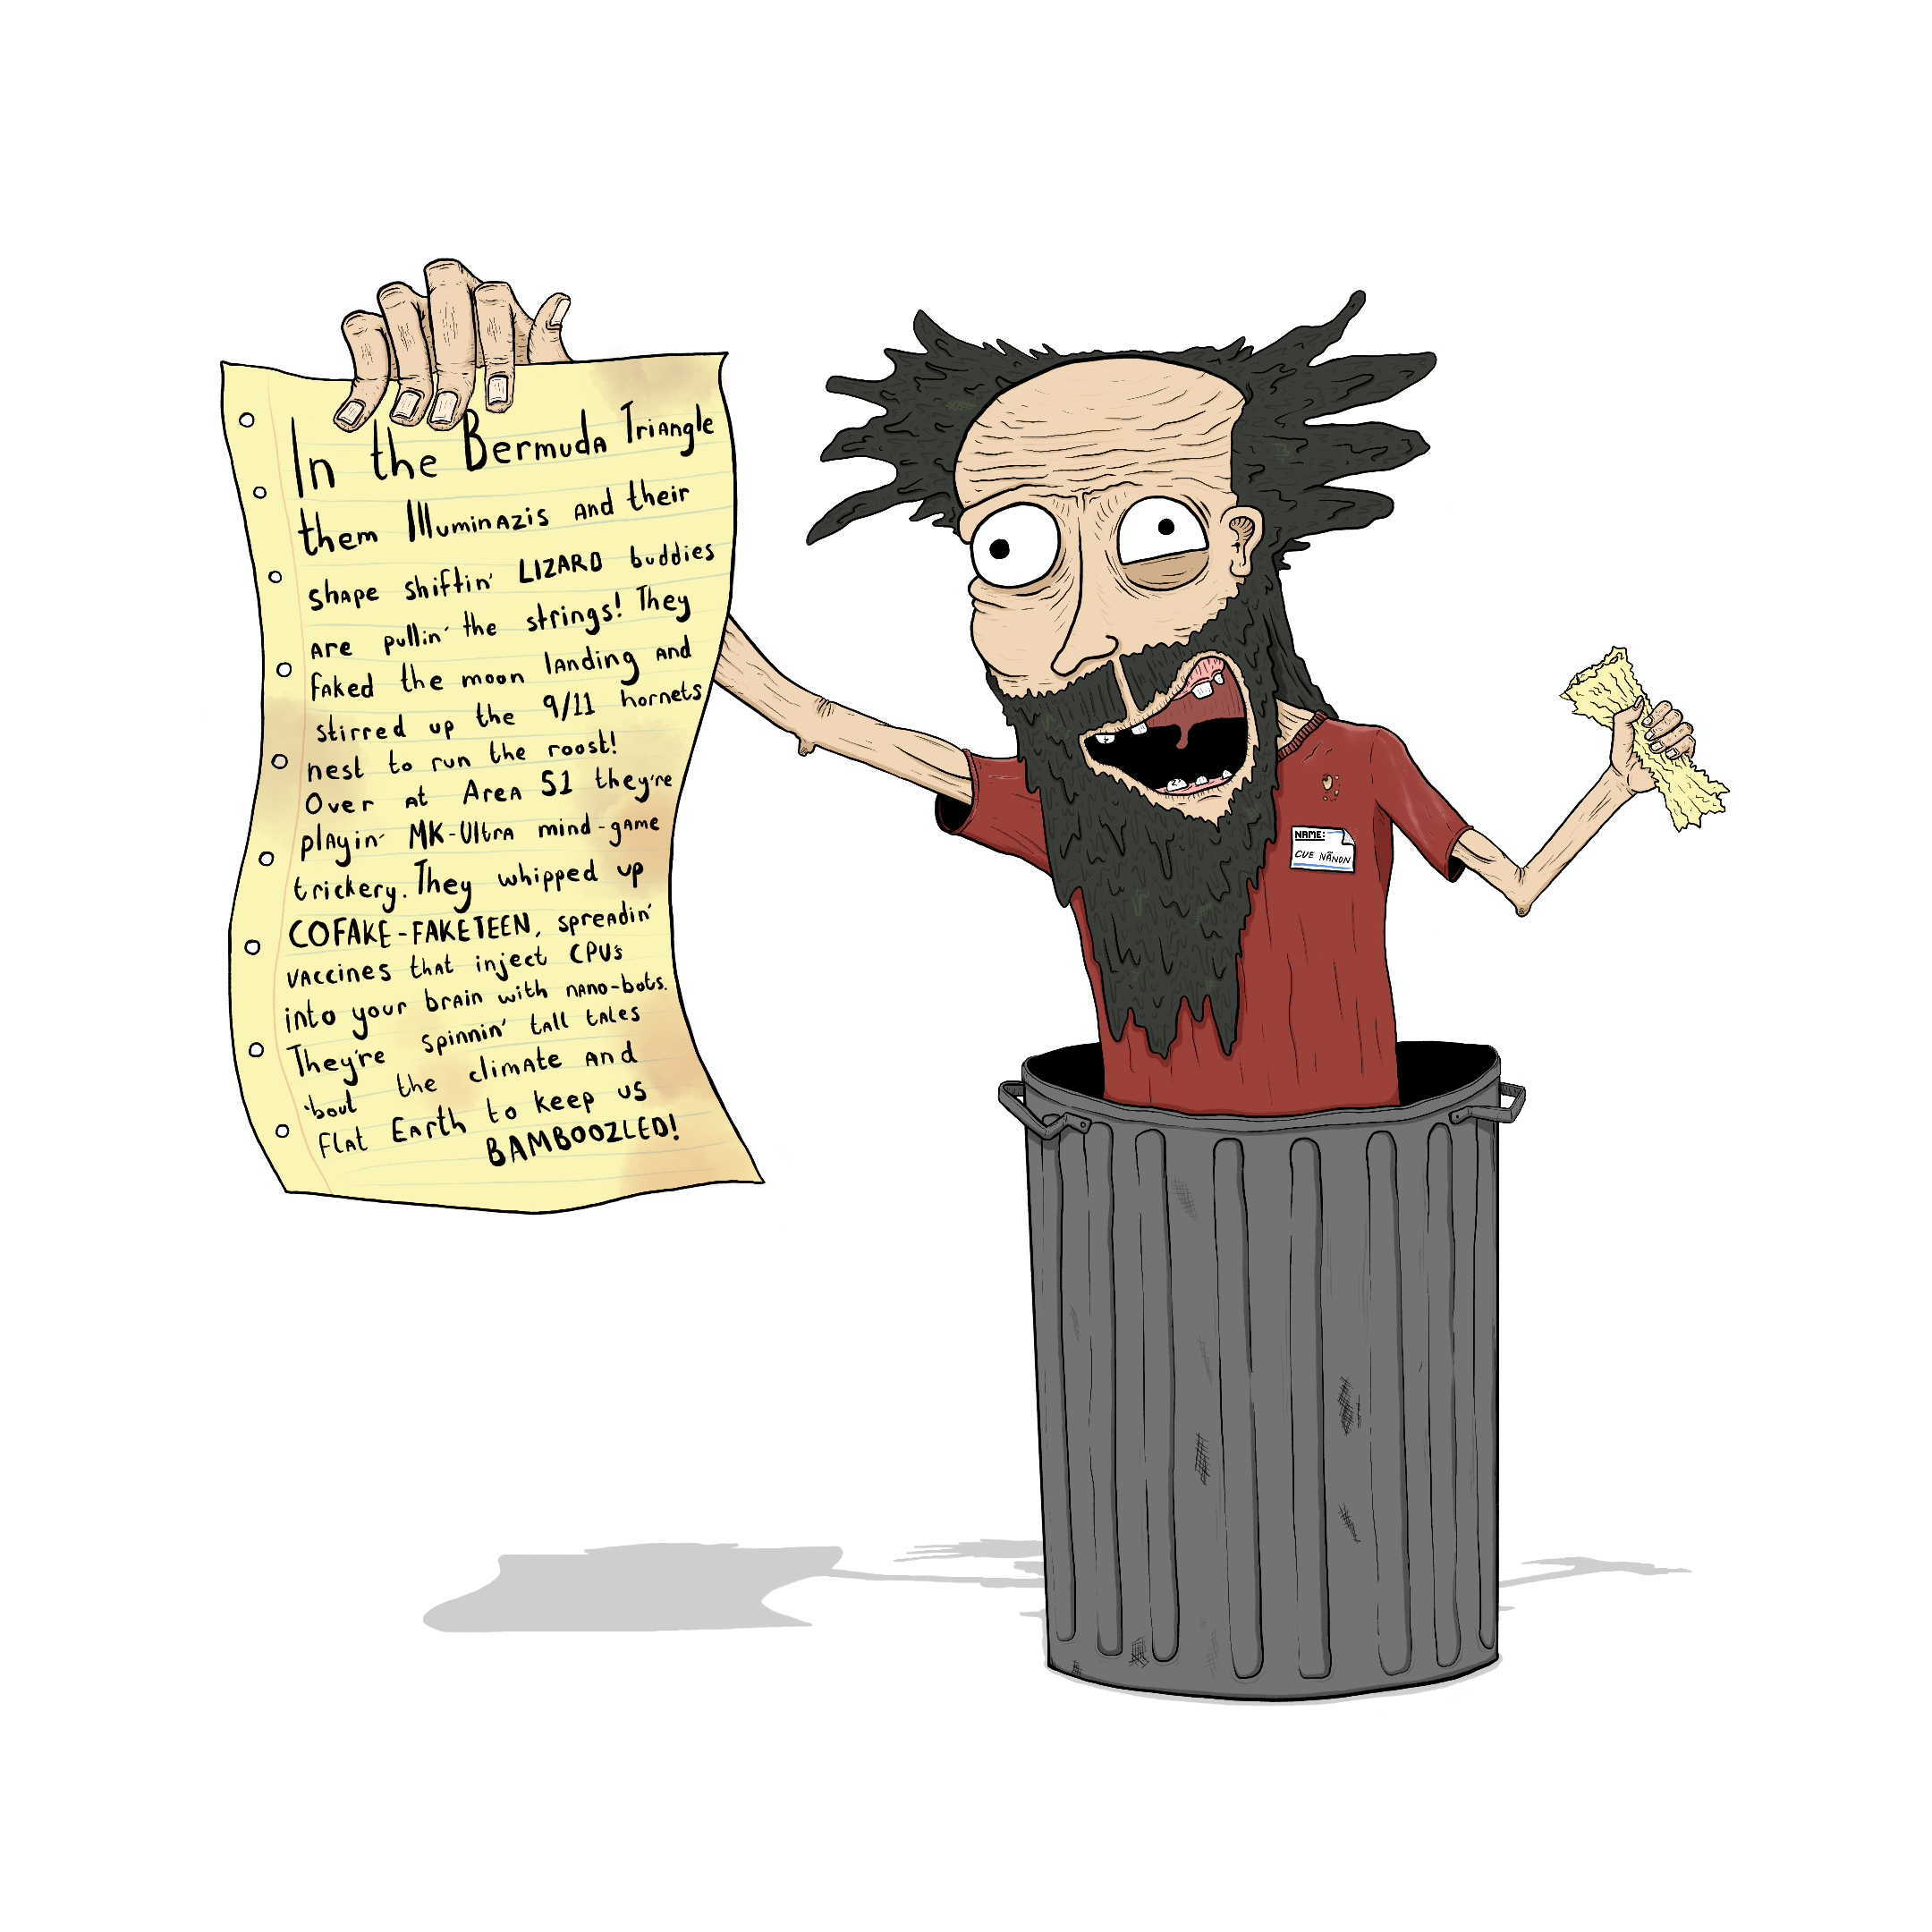 In the Bermuda Triangle
them Illuminazis and their
shape shiftin' LIZARD buddies
are pullin' the strings! They
faked the moon landing and
stirred up the 9/11 hornets
nest to run the roost!
Over at Area 51 they're
playin' MK-Ultra mind-game
trickery. They whipped up
COFAKE-FAKETEEN, spreadin'
vaccines that inject CPU's
into your brain with nano-bots.
They're spinnin' tall tales
'bout the climate and
flat Earth to keep us
BAMBOOZLED!
NAME:
CUE NÃNON